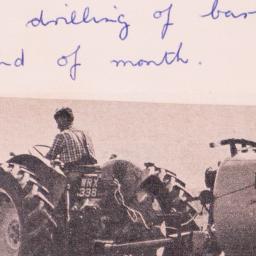 drilling of bar
nd of month.
WRX
338